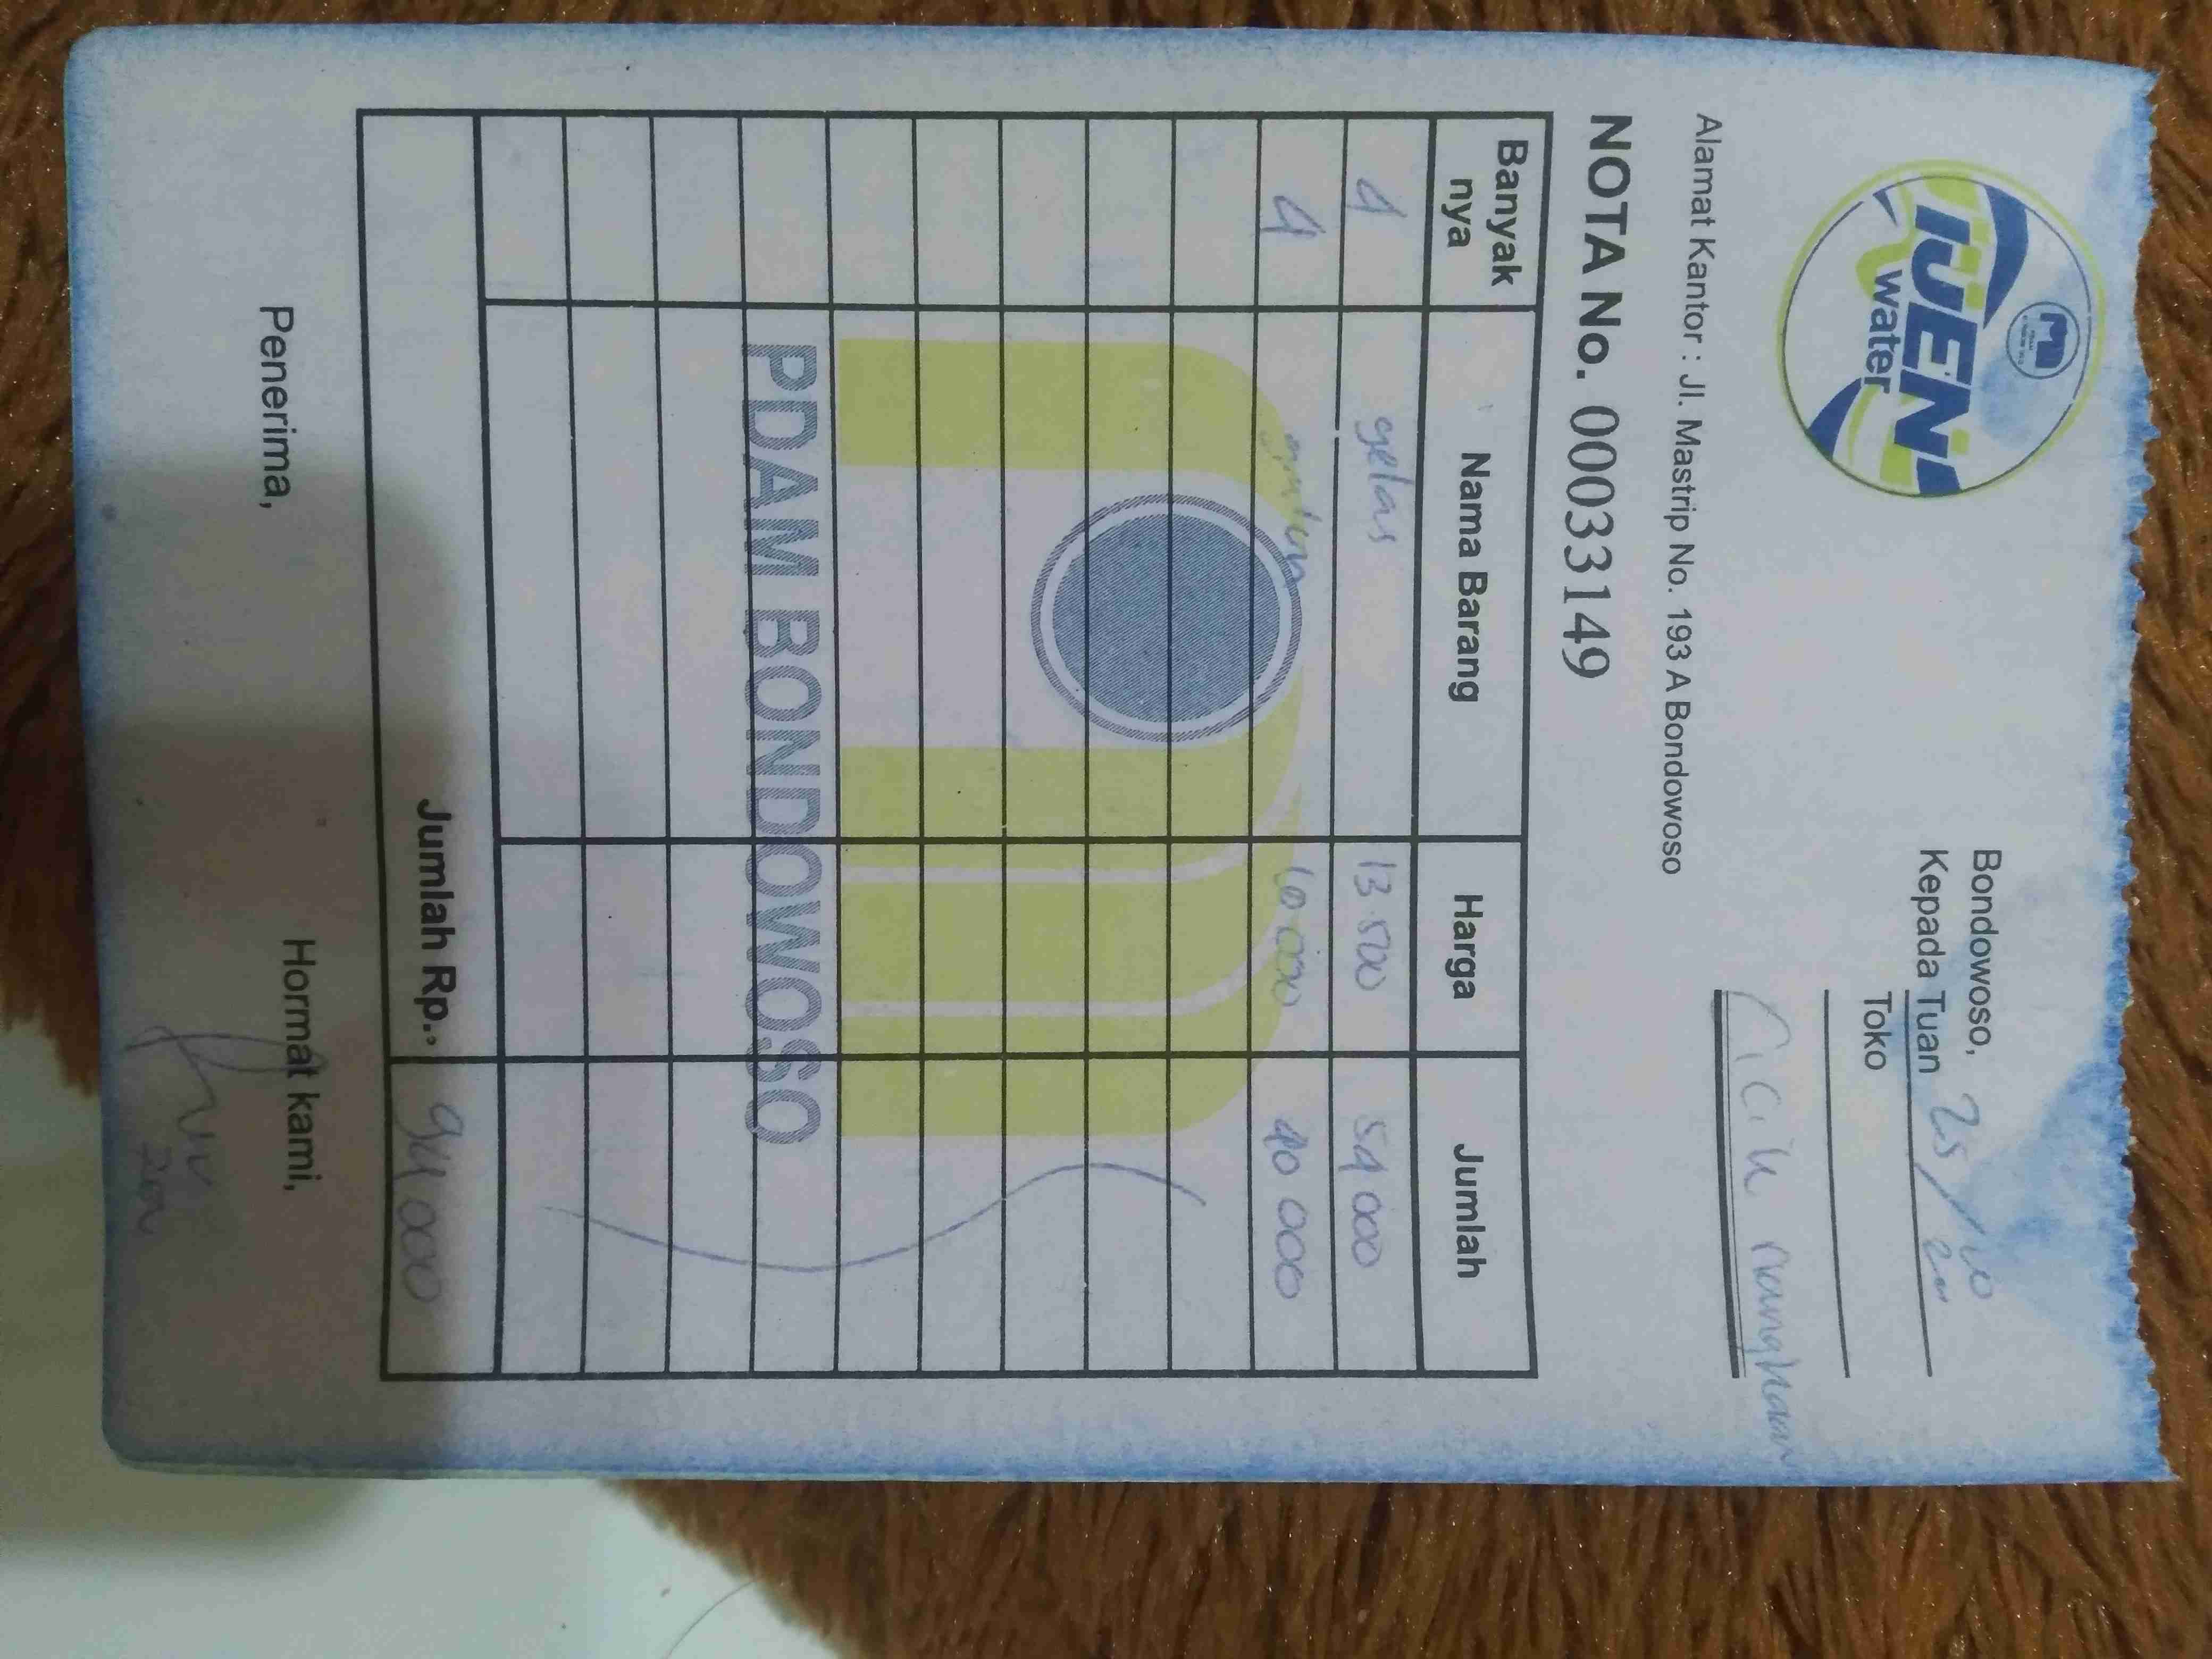 IJEN
water
Bondowoso, 25/10
Kepada Tuan
Toko
Cicik nangkaan
Alamat Kantor : Jl. Mastrip No. 193 A Bondowoso
NOTA No. 00033149
Banyak nya Nama Barang Harga Jumlah
4 gelas 13.500 54 000
4 10.000 40 000
PDAM BONDOWOSO
Jumlah Rp.. 94 000
Penerima, Hormat kami,